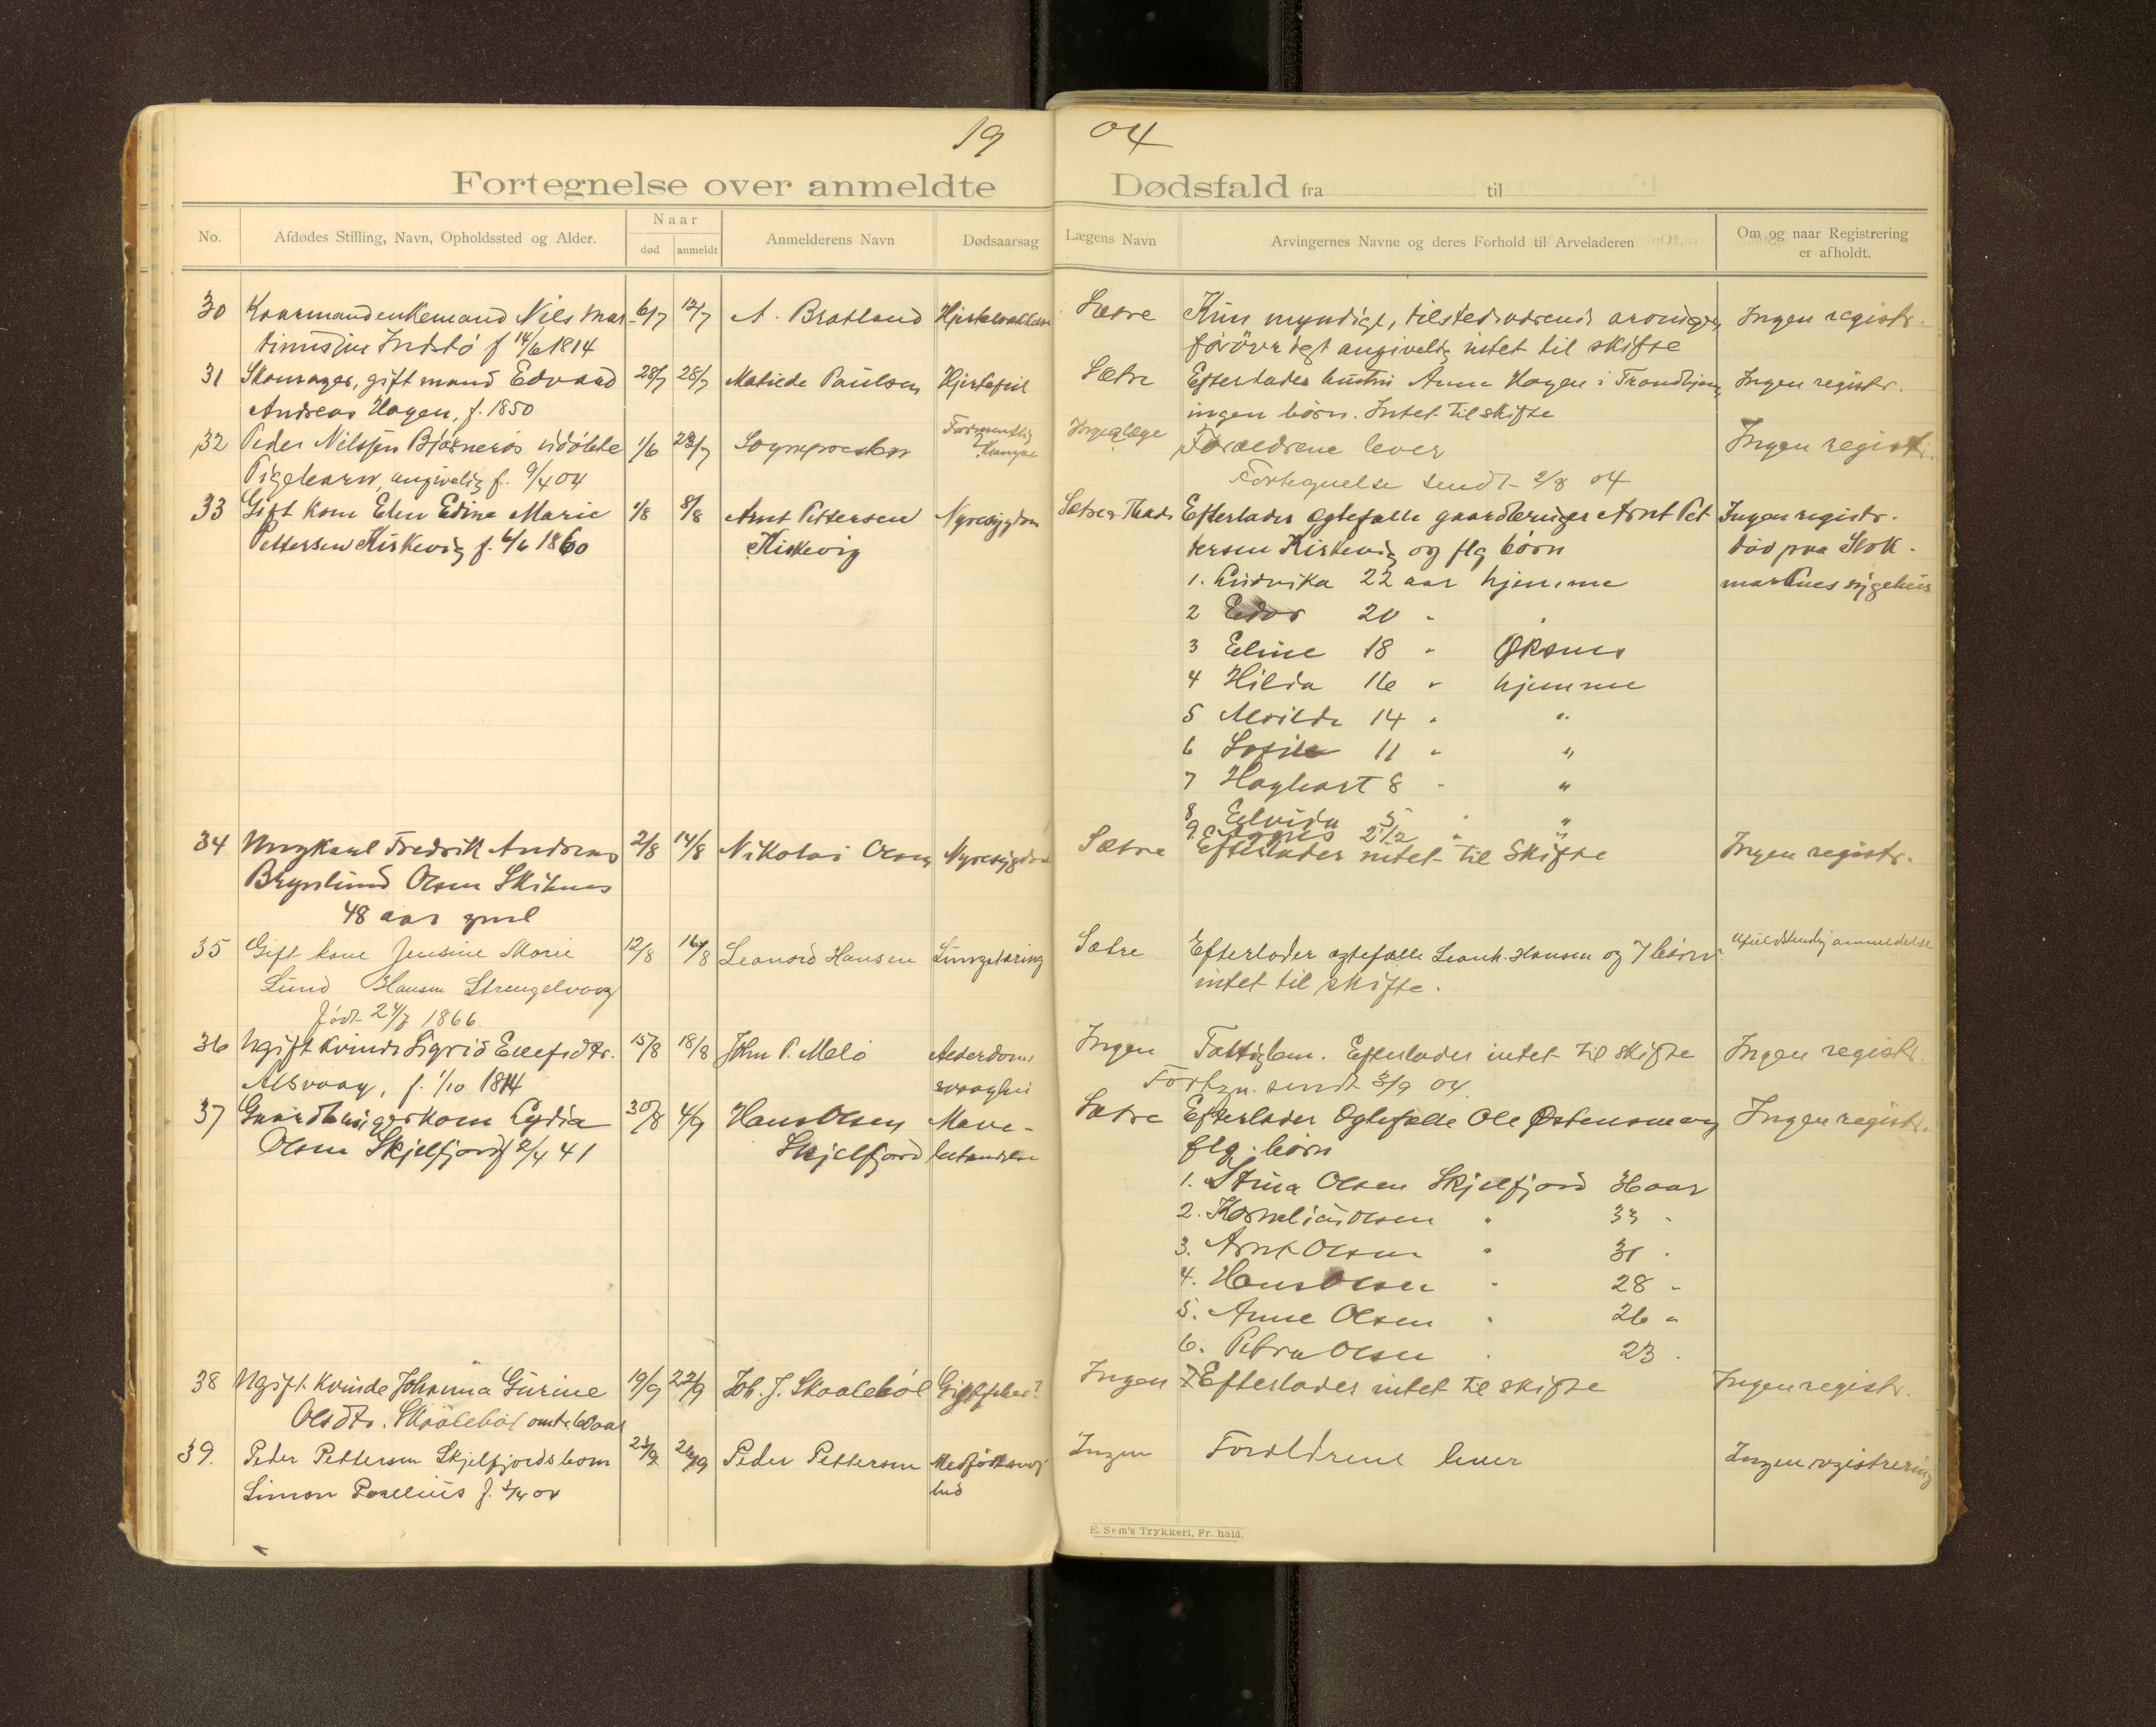 19 04
Fortegnelse over anmeldte Dødsfald fra til
No.
Afdødes Stilling, Navn, Opholdssted og Alder.
Naar
død
anmeldt
Anmelderens Navn
Dødsaarsag
Lægens Navn
Arvingernes Navne og deres Forhold til Arveladeren
Om og naar Registrering
er afholdt.
30 Kaarmand enkemand Nils Mar- 6/7 12/7 A. Bratland Sætre Kun myndige, tilstedeværende arvinger, Ingen registr.
tinussen f 14/6 1814 forøvrigt angivelig intet til skifte
31 Skomager, gift mand Edvard 28/7 28/7 Matilde Paulsen Hjertefeil Sætre Efterlader hustru Anna Hagen i Trondhjem, Ingen registr.
Andreas Hagen, f. 1850 ingen børn. Intet til skifte
32 Peder Nilssen Bjørnerøs udøbte 1/6 23/7 Sognepresten Formentlig Krampe Ingen læge Forældrene lever Ingen registr.
Pigebarn, angivelig f. 9/4 04 Fortegnelse sendt 2/8 04
33 Gift kone Elen Edine Marie 1/8 8/8 Arnt Pettersen Nyresygdom Efterlader ægtefælle gaardbruger Arnt Pet Ingen registr.
Pettersen Kirkevig f. 6/6 1860 Kirkevig tersen Kirkevig og flg børn død paa Stok-
1. Ludvika 22 aar hjemme marknes sygehus
2 20 "
3 Eline 18 " Øksnes
4 Hilda 16 " hjemme
5 Alvilde 14 " "
6 Sofie 11 " "
7 Haghart 8 " "
8 Elvida 5 " "
9. Agnes 2 1/2 " "
34 Ungkarl Fredrik Andreas 2/8 14/8 Nikolai Olsen Nyresygdom Sætre Efterlader intet til Skifte Ingen registr.
Brynlund Olsen Skitnes
48 aar gml
35 Gift kone Jensine Marie 12/8 16/8 Leonard Hansen Lungetæring Sætre Efterlader ægtefælle Leonh. Hansen og 7 børn Ufuldstendig anmeldelse
Lund Hansen Strengelvaag intet til skifte.
født 24/7 1866
36 Ugift kvinde Sigrid Ellefsdtr. 15/8 18/8 John P. Melø Alderdoms Ingen Fattiglem. Efterlader intet til skifte Ingen registr.
Alsvaag, f. 1/10 1814 svaghei Fortgn. sendt 3/9 04
37 Gaardbrugerkone Lydia 30/8 4/9 Hans Olsen Mave- Sætre Efterlader Ægtefælle Ole Østensen og Ingen registr.
Olsen Skjelfjord f 2/4 41 Skjelfjord betændelse flg. børn
1. Stina Olsen Skjelfjord 36 aar
2. Kornelius Olsen " 33 "
3. Arnt Olsen " 31 "
4. Hans Olsen " 28 "
5. Anne Olsen " 26 "
6. Petra Olsen " 23 "
38 Ugift kvinde Johanna Gurine 19/9 22/9 Joh. J. Skaalebøl Gigtfeber? Ingen Efterlader intet til skifte Ingen registr.
Olsdtr. Skaalebøl omtr. 60 aar
39. Peder Pettersen Skjelfjords barn 23/9 26/9 Peder Pettersen Medfødt svag Ingen Forældrene lever Ingen registrering
Simon Poselius f. 04 hed
E. Sem's Trykkeri, Fr. hald.